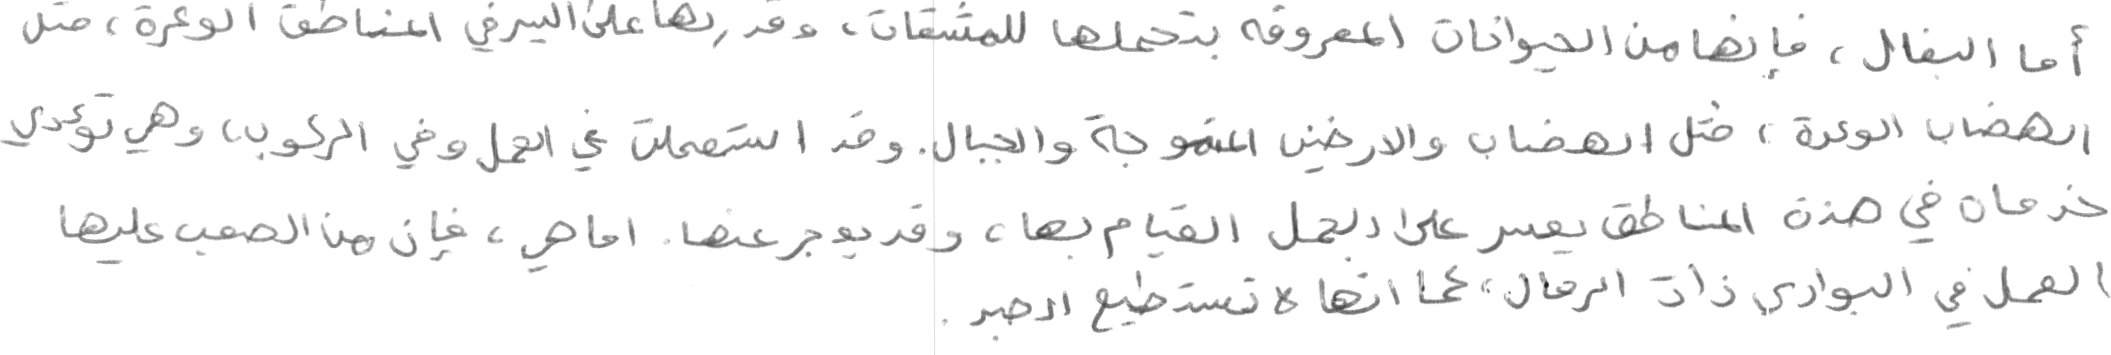 أما البغال، فإنها من الحيوانات المعروفه بتحملها للمشقات، وقدرتها على السير في المناطق الوعرة، مثل
الهضاب الوعرة، مثل الهضاب والارضين المتموجة والجبال. وقد استعملت في العمل وفي الركوب، وهي تؤدي
خدمات في هذه المناطق يعسر على الجمل القيام بها، وقد يعجز عنها. اما هي، فإن من الصعب عليها
العمل في البوادي ذات الرمال، كما انها لا تستطيع الصبر.